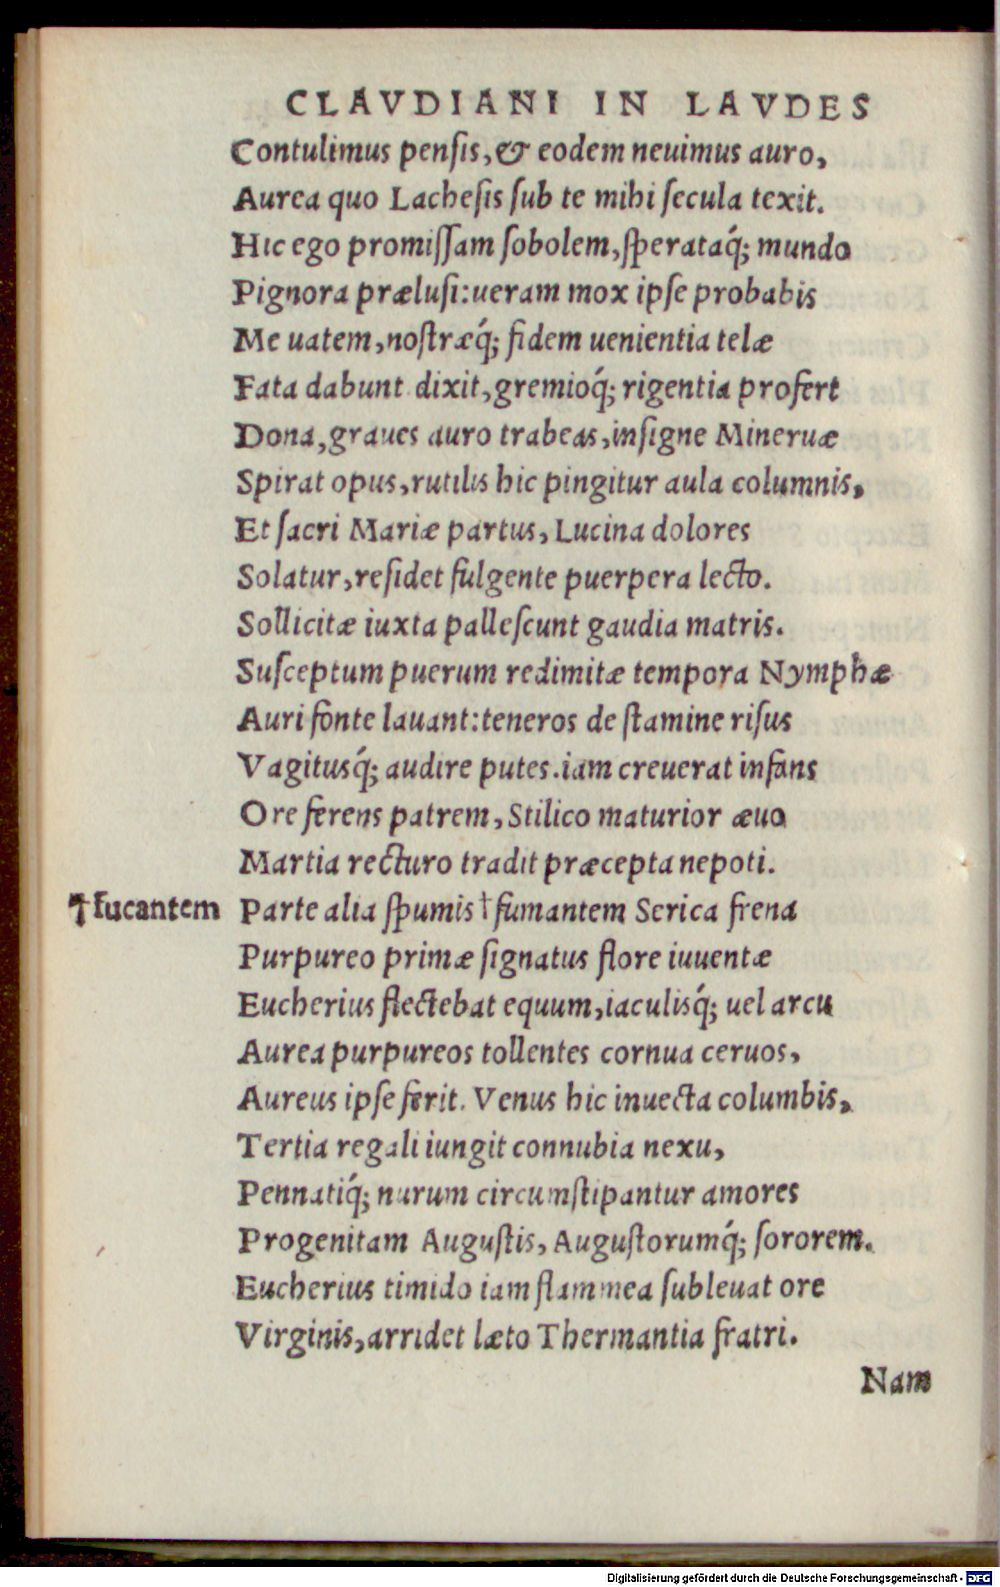 CLAVDIANI IN LAVDES
Contulimus penſis, & eodem neuimus auro,
Aurea quo Lacheſis ſub te mihi ſecula texit.
Hic ego promiſſam ſobolem, ſperataq́; mundo
Pignora præluſi: ueram mox ipſe probabis
Me uatem, noſtræq́; fidem uenientia telæ
Fata dabunt dixit, gremioq́; rigentia profert
Dona, graues auro trabeas, inſigne Mineruæ
Spirat opus, rutilis hic pingitur aula columnis,
Et ſacri Mariæ partus, Lucina dolores
Solatur, reſidet fulgente puerpera lecto.
Sollicitæ iuxta palleſcunt gaudia matris.
Suſceptum puerum redimitæ tempora Nymphæ
Auri fonte lauant: teneros de ſtamine riſus
Vagitusq́; audire putes. iam creuerat infans
Ore ferens patrem, Stilico maturior æuo
Martia recturo tradit præcepta nepoti.
†fucantem Parte alia ſpumis †fumantem Serica frena
Purpureo primæ ſignatus flore iuuentæ
Eucherius flectebat equum, iaculisq́; uel arcu
Aurea purpureos tollentes cornua ceruos,
Aureus ipſe ferit. Venus hic inuecta columbis,
Tertia regali iungit connubia nexu,
Pennatiq́; nurum circumſtipantur amores
Progenitam Auguſtis, Auguſtorumq́; ſororem.
Eucherius timido iam flammea ſubleuat ore
Virginis, arridet læto Thermantia fratri.
Nam
Digitalisierung gefördert durch die Deutsche Forschungsgemeinschaft - DFG